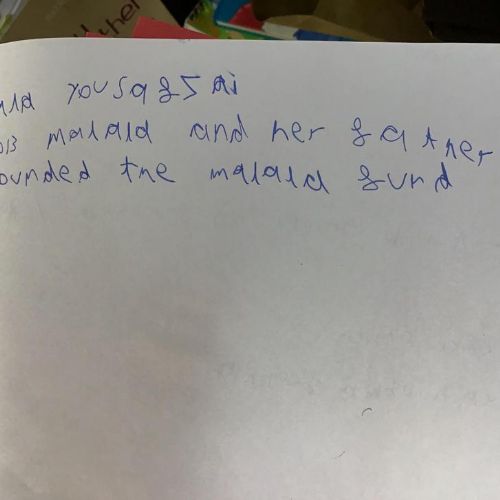 ala yousafzai
013 malala and her father
ounded the malala fund